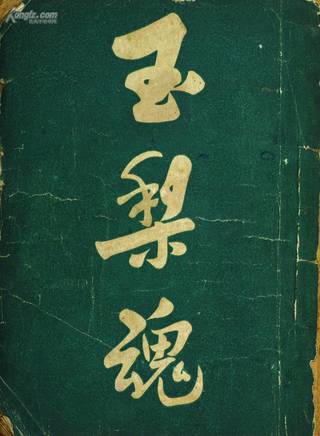 Kongfz.com
玉梨魂